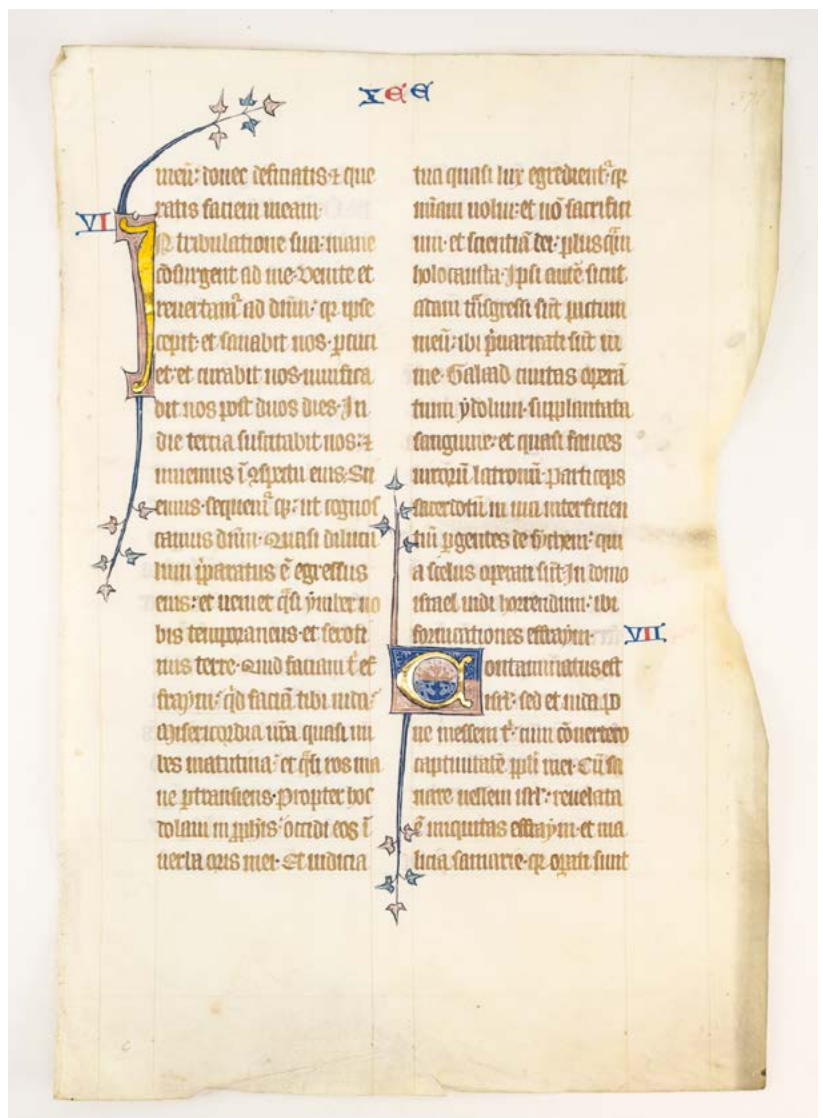 X E E
meū: donec deficiatis ⁊ que
ratis faciem meam·
VI
IN tribulatione sua mane
ꝯsurgent ad me· Venite et
reuertamᷣ ad dn̄m: qꝛ ipse
cepit· et sanabit nos· ꝑcuci
et· et curabit nos· uiuifica
bit nos post duos dies· In
die tertia suscitabit nos: ⁊
uiuemus ī ꝯspectu eius· Sci
emus· sequemᷣ qꝫ: ut cognos
camus dn̄m· Quasi dilucu
lum p̄paratus ē egressus
eius: et ueniet q̄si ymber no
bis temporaneus· et seroti
nus terre· Quid faciam t̄ ef
fraym: q̄d faciā tibi iuda:
Misericordia ur̄a quasi nu
bes matutina: et q̄si ros ma
ne ꝑtransiens· Propter hoc
dolaui in ꝓph̄is: occidi eos ī
uerba oris mei· Et iudicia
tua quasi lux egredientᷣ: qꝛ
mīam uolui: et nō sacrifici
um· et scientiā dei: plus quā
holocausta· Ipsi autē sicut
adam tn̄sgressi sūt pactum
meū: ibi p̄uaricati sūt in
me· Galaad ciuitas operā
tium ydolum: supplantata
sanguine: et quasi fauces
uirorū latronū· Particeps
sacerdotū in uia interficien
tiū ꝑgentes de sychem: qui
a scelus operati sūt· In domo
israel uidi horrendum: ibi
fornicationes effraym·
VII
Contaminatus est
isrl̄: sed et iuda po
ne messem t̄: cum cōuertero
captiuitatē ppl̄i mei· Cū sa
nare uellem isrl̄: reuelata
ē iniquitas effraym· et ma
licia samarie· qꝛ oꝑati sunt